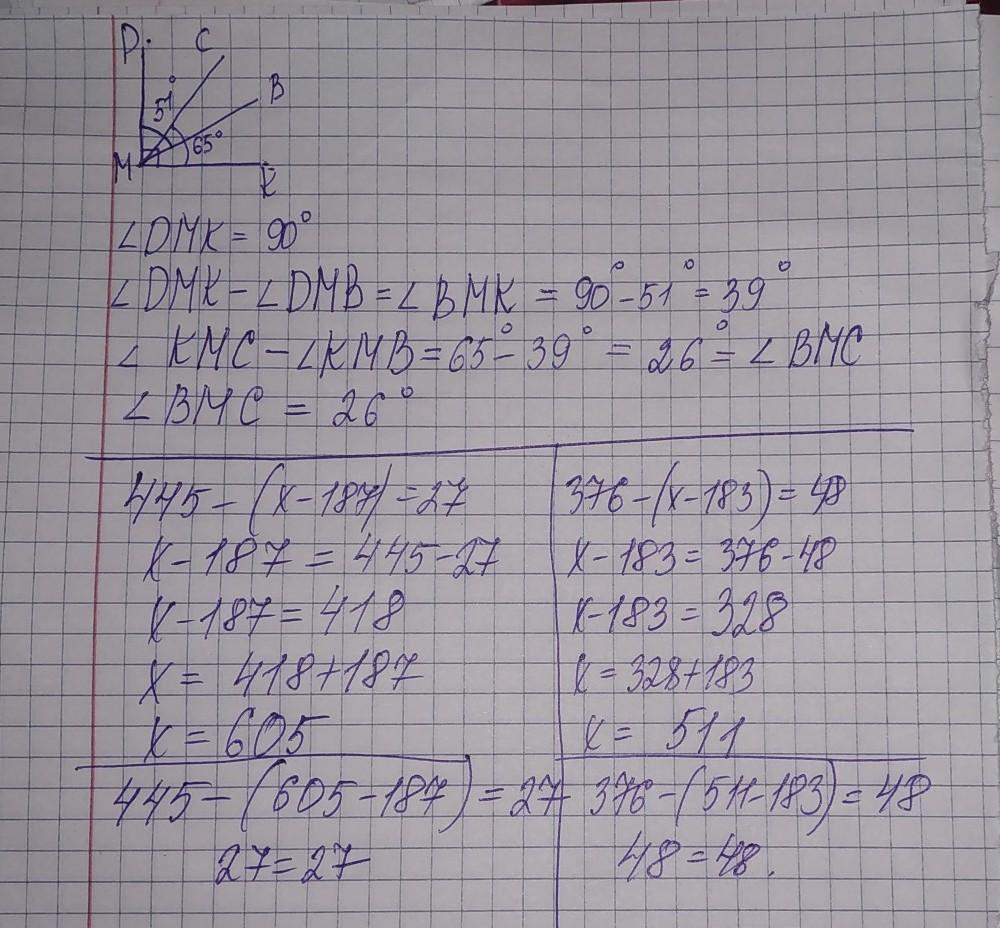 D. C
51° B
M 65°
K
∠DMK = 90°
∠DMK - ∠DMB = ∠BMK = 90° - 51° = 39°
∠KMC - ∠KMB = 65° - 39° = 26° = ∠BMC
∠BMC = 26°
445 - (x - 187) = 27
x - 187 = 445 - 27
x - 187 = 418
x = 418 + 187
x = 605
445 - (605 - 187) = 27
27 = 27
376 - (x - 183) = 48
x - 183 = 376 - 48
x - 183 = 328
x = 328 + 183
x = 511
376 - (511 - 183) = 48
48 = 48.